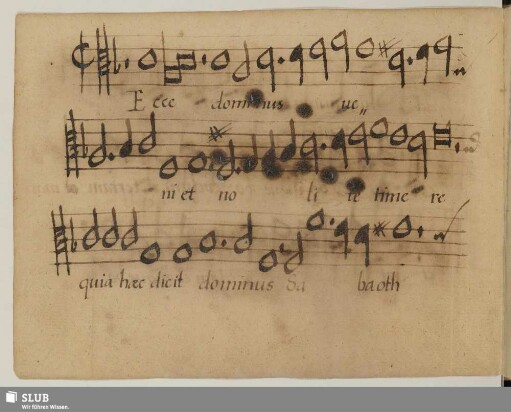 Ecce dominus ue„
ni et no li te time re
quia hæc dicit dominus Sa baoth
SLUB
Wir führen Wissen.